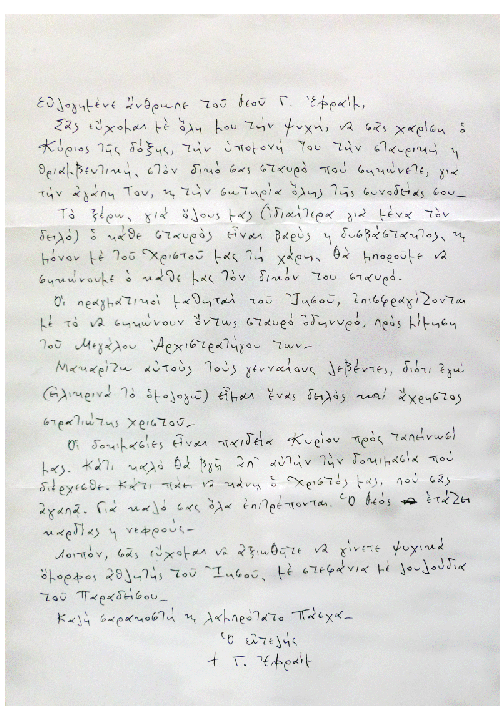 Εὐλογημένε ἄνθρωπε τοῦ Θεοῦ Γ. Ἐφραίμ,
Σᾶς εὔχομαι μέ ὅλη μου τήν ψυχή, νά σᾶς χαρίση ὁ
Κύριος τῆς δόξης, τήν ὑπομονή του τήν σταυρική ἤ
θριαμβευτική, στόν δικό σας σταυρό πού σηκώνετε, γιά
τήν ἀγάπη Του, κ τήν σωτηρία ὅλης τῆς συνοδείας σου_
Τό ξέρω, γιά ὅλους μας (ἰδιαίτερα γιά μένα τόν
δειλό) ὁ κάθε σταυρός εἶναι βαρύς κ δυσβάστακτος, κ
μόνον μέ τοῦ Χριστοῦ μας τή χάρη, θά μποροῦμε νά
σηκώνουμε ὁ κάθε μας τόν δικόν του σταυρό.
Οἱ πραγματικοί μαθηταί τοῦ Ἰησοῦ, ἐπισφραγίζονται
μέ τό νά σηκώνουν ὄντως σταυρό ὀδυνηρό, πρός μίμηση
τοῦ Μεγάλου Ἀρχιστρατήγου των_
Μακαρίζω αὐτούς τούς γενναίους λεβέντες, διότι ἐγώ
(εἰλικρινά τό ὁμολογῶ) εἶμαι ἕνας δειλός καί ἄχρηστος
στρατιώτης Χριστοῦ_
Οἱ δοκιμασίες εἶναι παιδεία Κυρίου πρός ταπείνωσί
μας. Κάτι καλό θά βγῆ ἀπ' αὐτήν τήν δοκιμασία πού
διέρχεσθε. Κάτι πάει νά κάνη ὁ Χριστός μας, πού σᾶς
ἀγαπᾶ. Γιά καλό σας ὅλα ἐπιτρέπονται. Ὁ Θεός ἐτάζει
καρδίας κ νεφρούς_
Λοιπόν, σᾶς εὔχομαι νά ἀξιωθῆτε νά γίνετε ψυχικά
ὄμορφος ἀθλητής τοῦ Ἰησοῦ, μέ στεφάνια μέ λουλούδια
τοῦ Παραδείσου_
Καλή σαρακοστή κ λαμπρότατο Πάσχα_
Ὁ εὐτελής
+ Γ. Ἐφραίμ